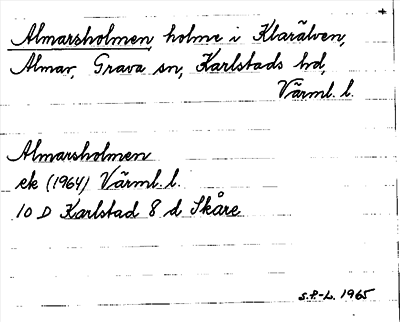 +
Almarsholmen, holme i Klarälven,
Almar, Grava sn, Karlstads hd,
Värml. l.
Almarsholmen
ek (1964) Värml. l.
10 D Karlstad 8 d Skåre
S.P-L. 1965